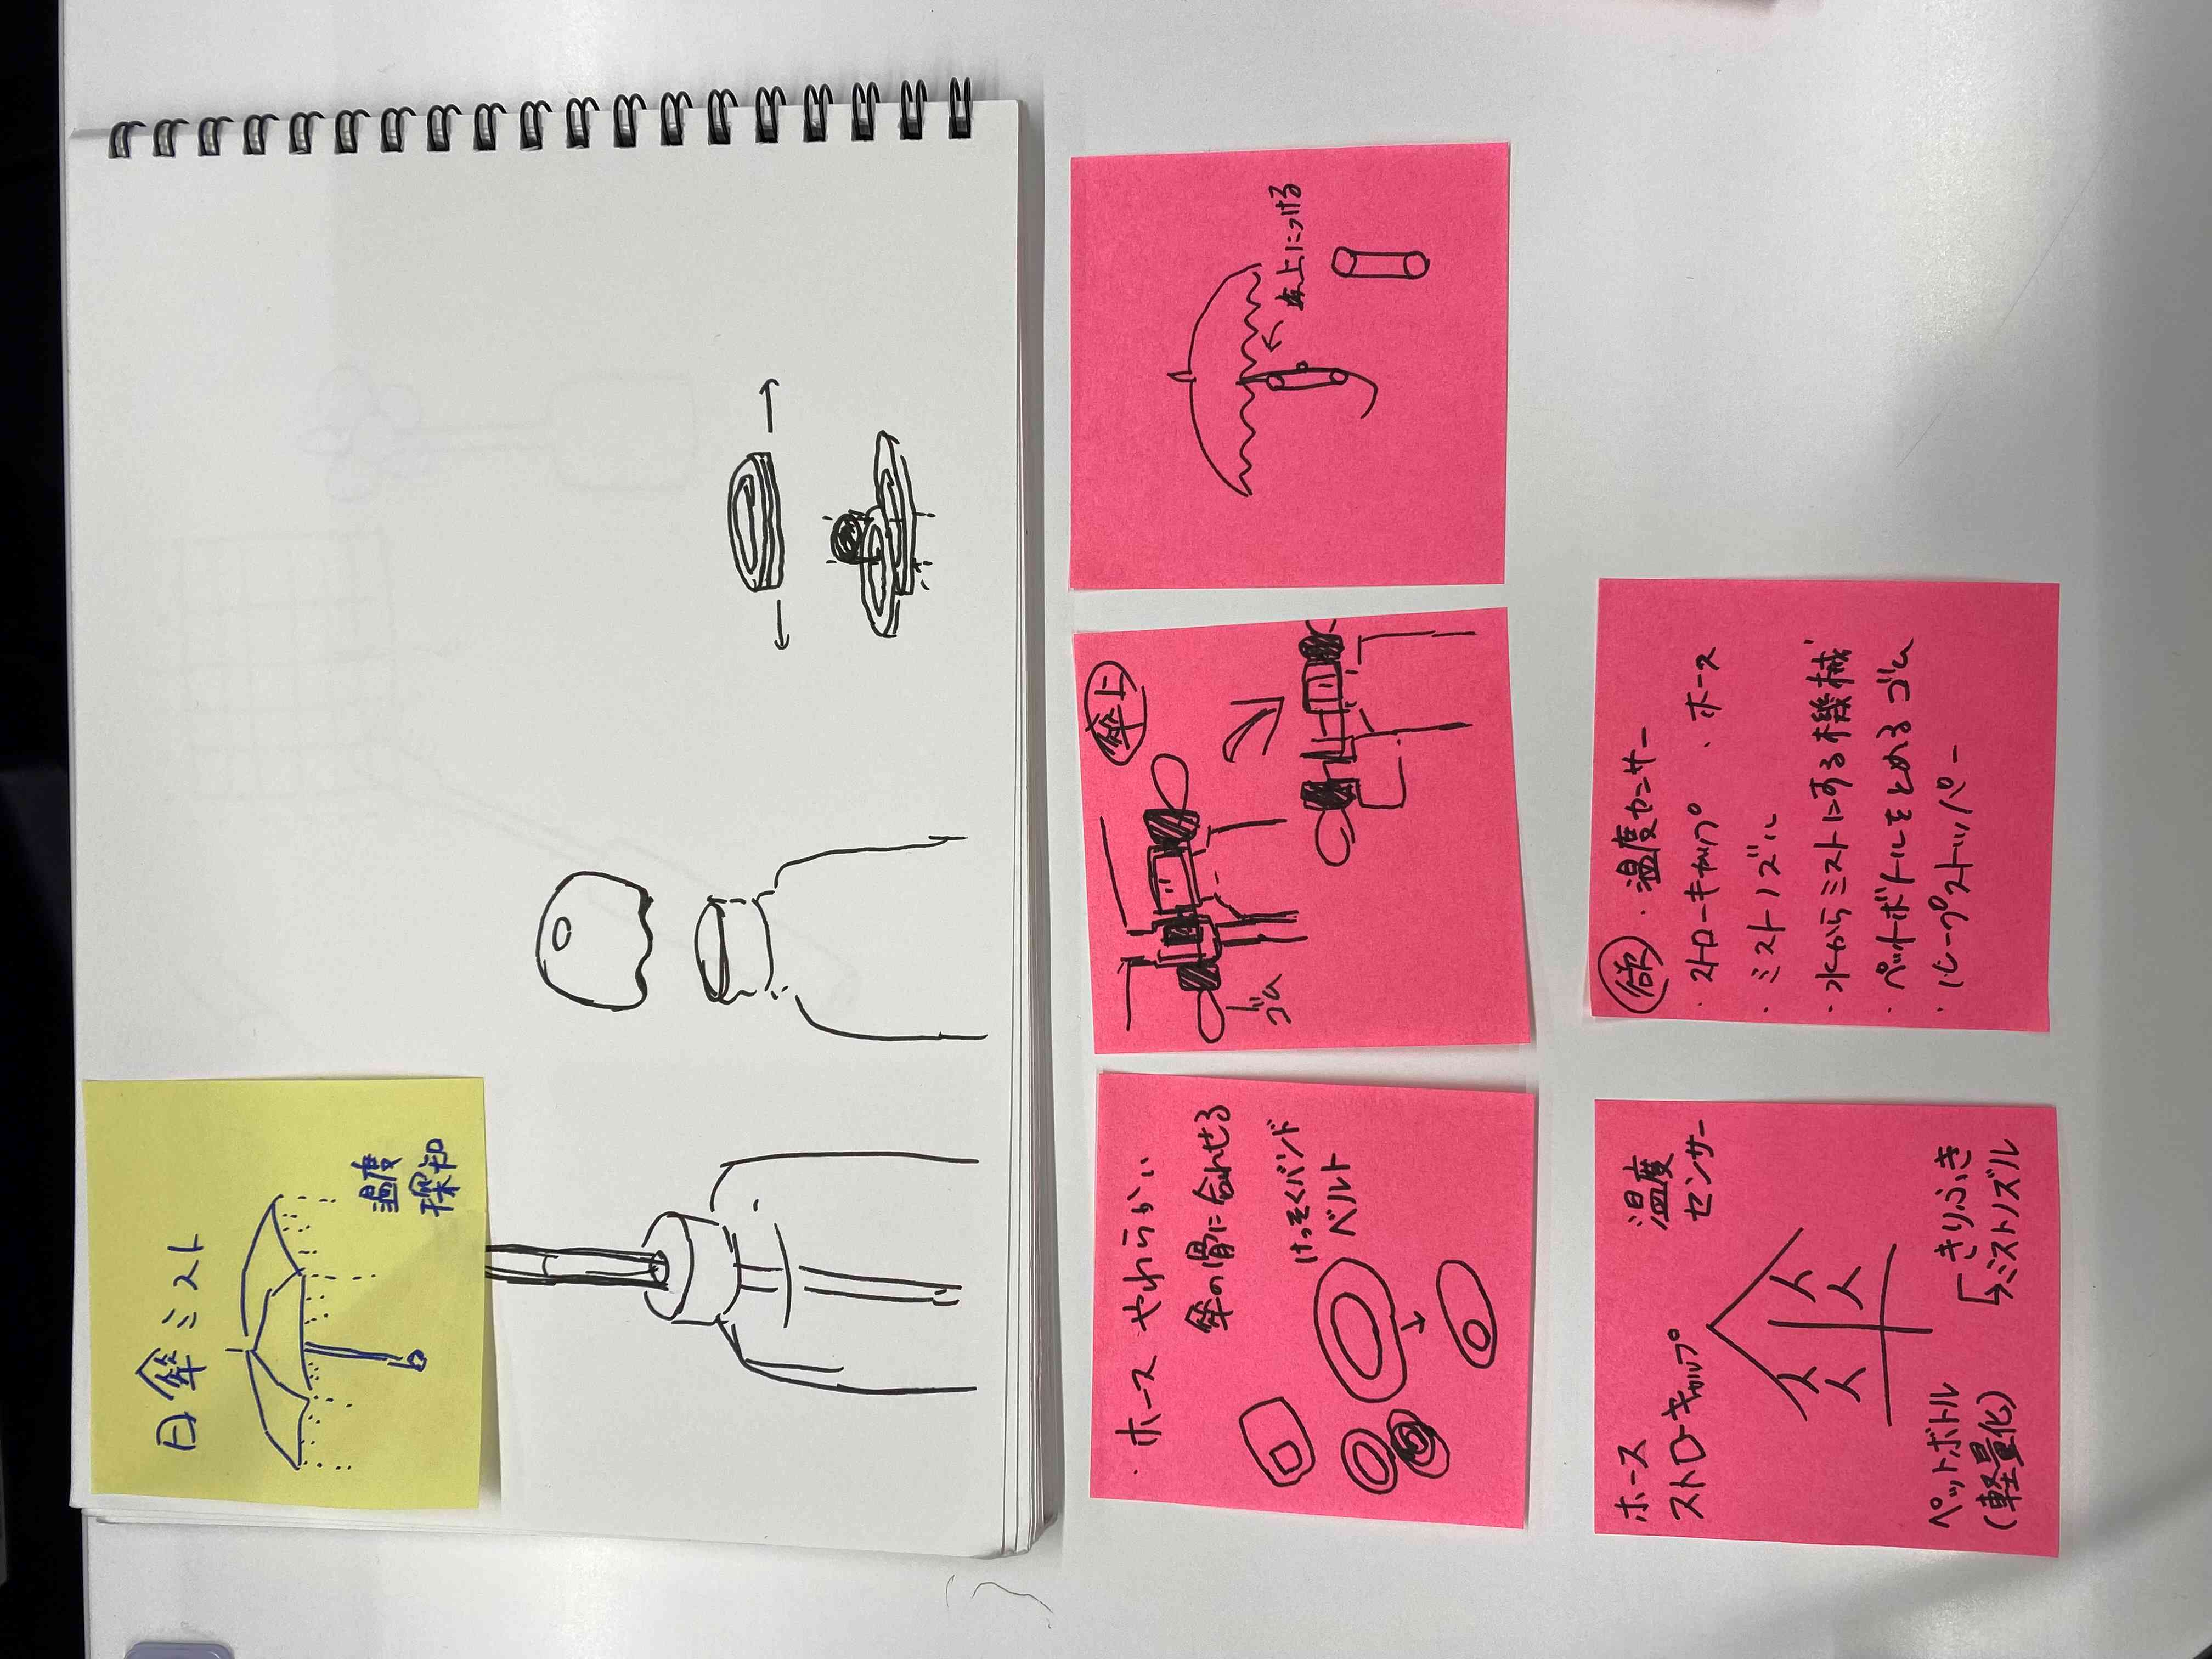 日傘ミスト
温度
探知
・ホース やわらかい
傘の骨に合わせる
けっそくバンド
ベルト
傘上
ゴム
上につける
ホース
ストローキャップ
温度
センサー
ペットボトル
(軽量化)
きりふき
ミストノズル
欲
・温度センサー
・ストローキャップ ・ホース
・ミストノズル
・水からミストにする機械
・ペットボトルをとめるゴム
・ループストッパー